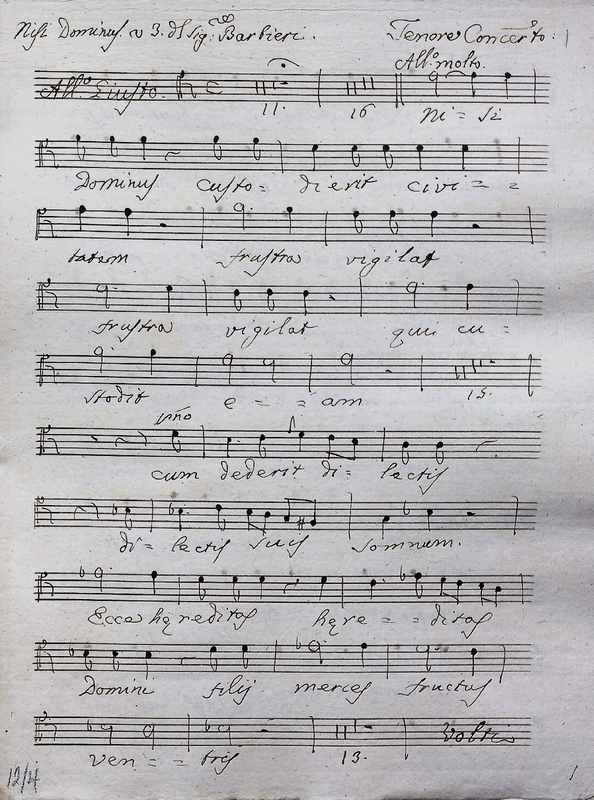 Nisi Dominus a 3. dl Sig:re Barbieri.
Tenore Concerto:
All:o molto.
All:o Giusto.
11. 16 Ni = si
Dominus custo = dierit civi = =
tatem frustra vigilat
frustra vigilat qui cu =
stodit e = = am 15.
pno
cum dederit di = lectis
di = lectis suis somnum.
Ecce hęreditas hęre = = ditas
Domini filij merces fructus
ven = = tris 13. Volti
12/4 1